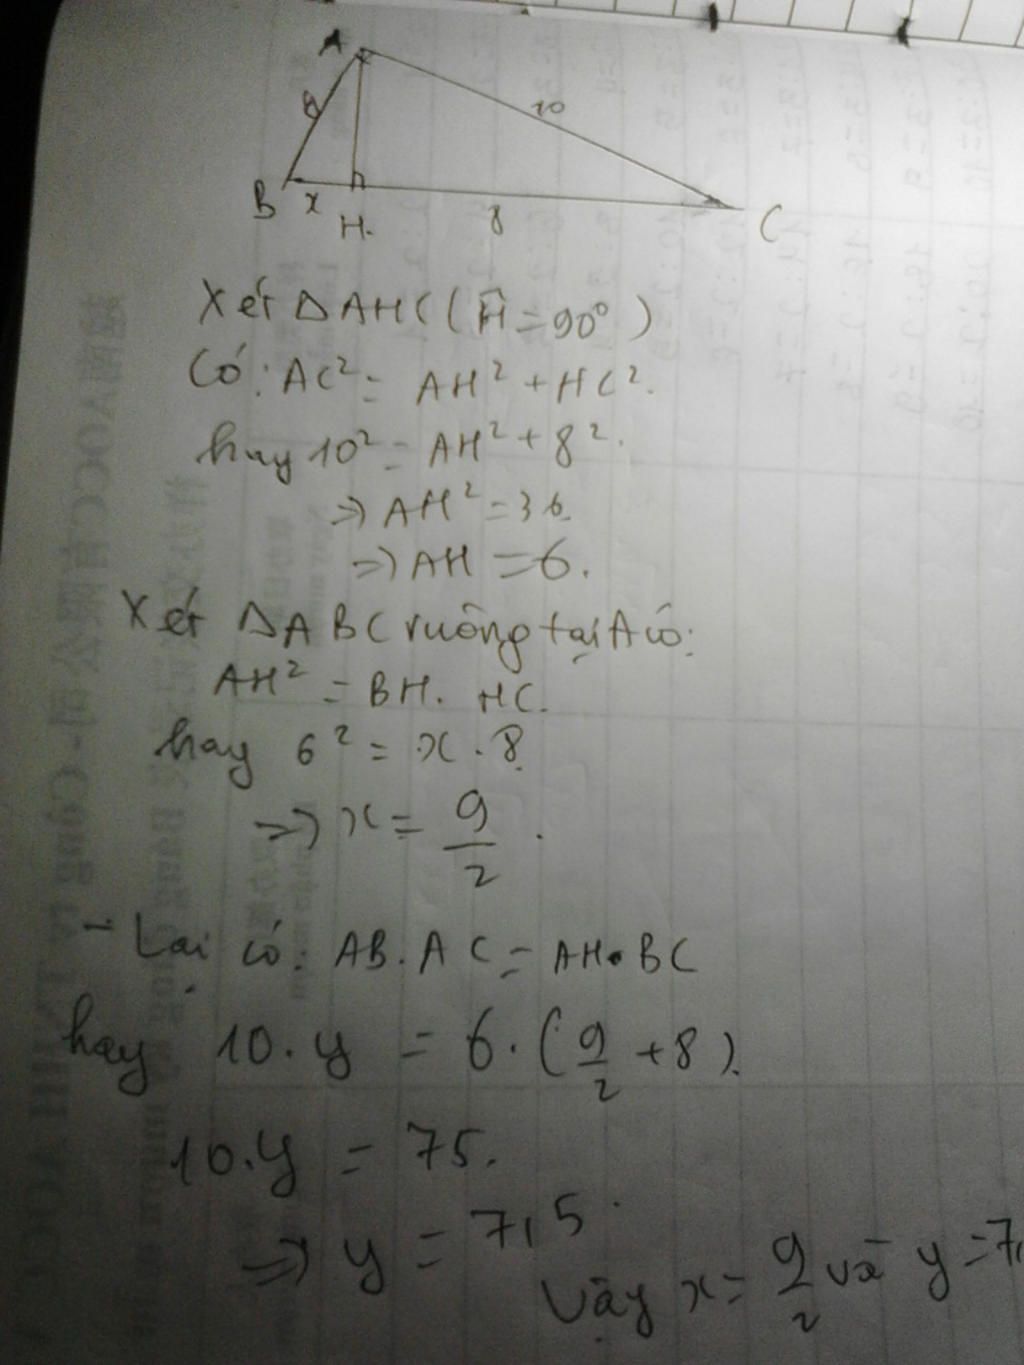 A
10
B x H. 8 C
Xét ΔAHC (Ĥ = 90°)
Có: AC² = AH² + HC².
hay 10² = AH² + 8².
=> AH² = 36.
=> AH = 6.
Xét ΔABC vuông tại A có:
AH² = BH. HC.
hay 6² = x . 8.
=> x = 9/2 .
- Lại có: AB. AC = AH.BC
hay 10. y = 6. (9/2 + 8).
10.y = 75.
=> y = 7,5.
Vậy x = 9/2 và y = 7,